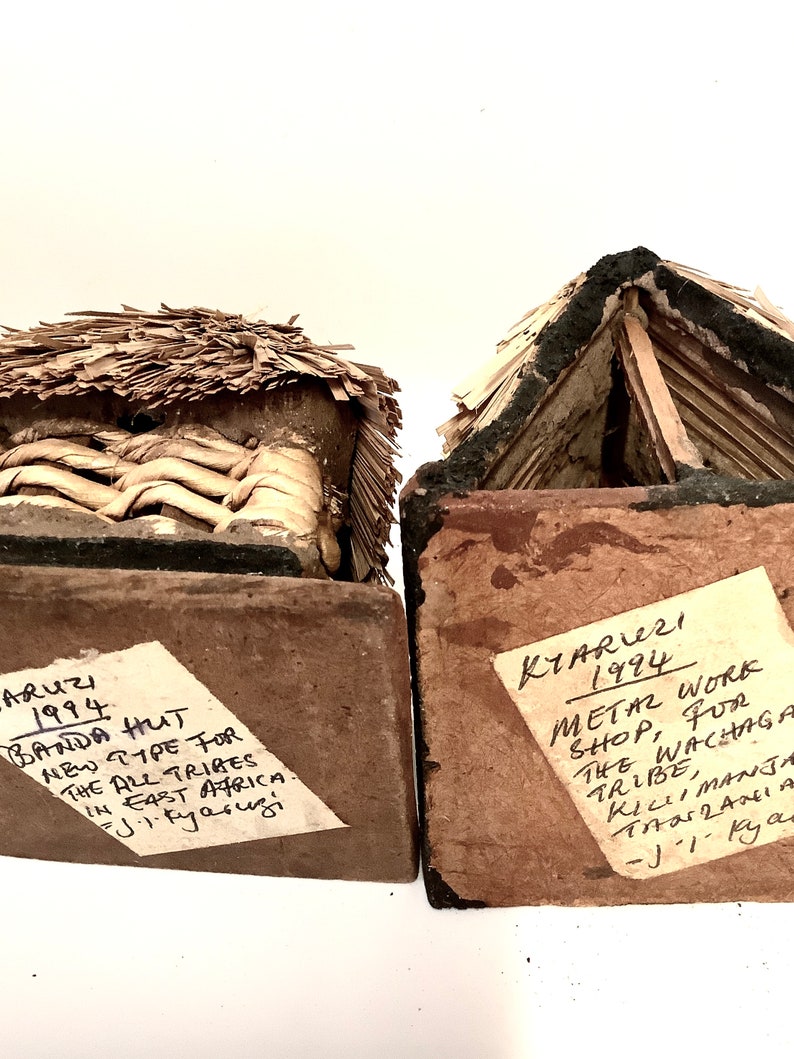 ARUZI
1994
BANDA HUT
NEW TYPE FOR
THE ALL TRIBES
IN EAST AFRICA.
- J. I. Kyaruzi
KYARUZI
1994
METAL WORK
SHOP, FOR
THE WACHAGA
TRIBE,
KILIMANJA
TANZANIA
- J. I. Kya